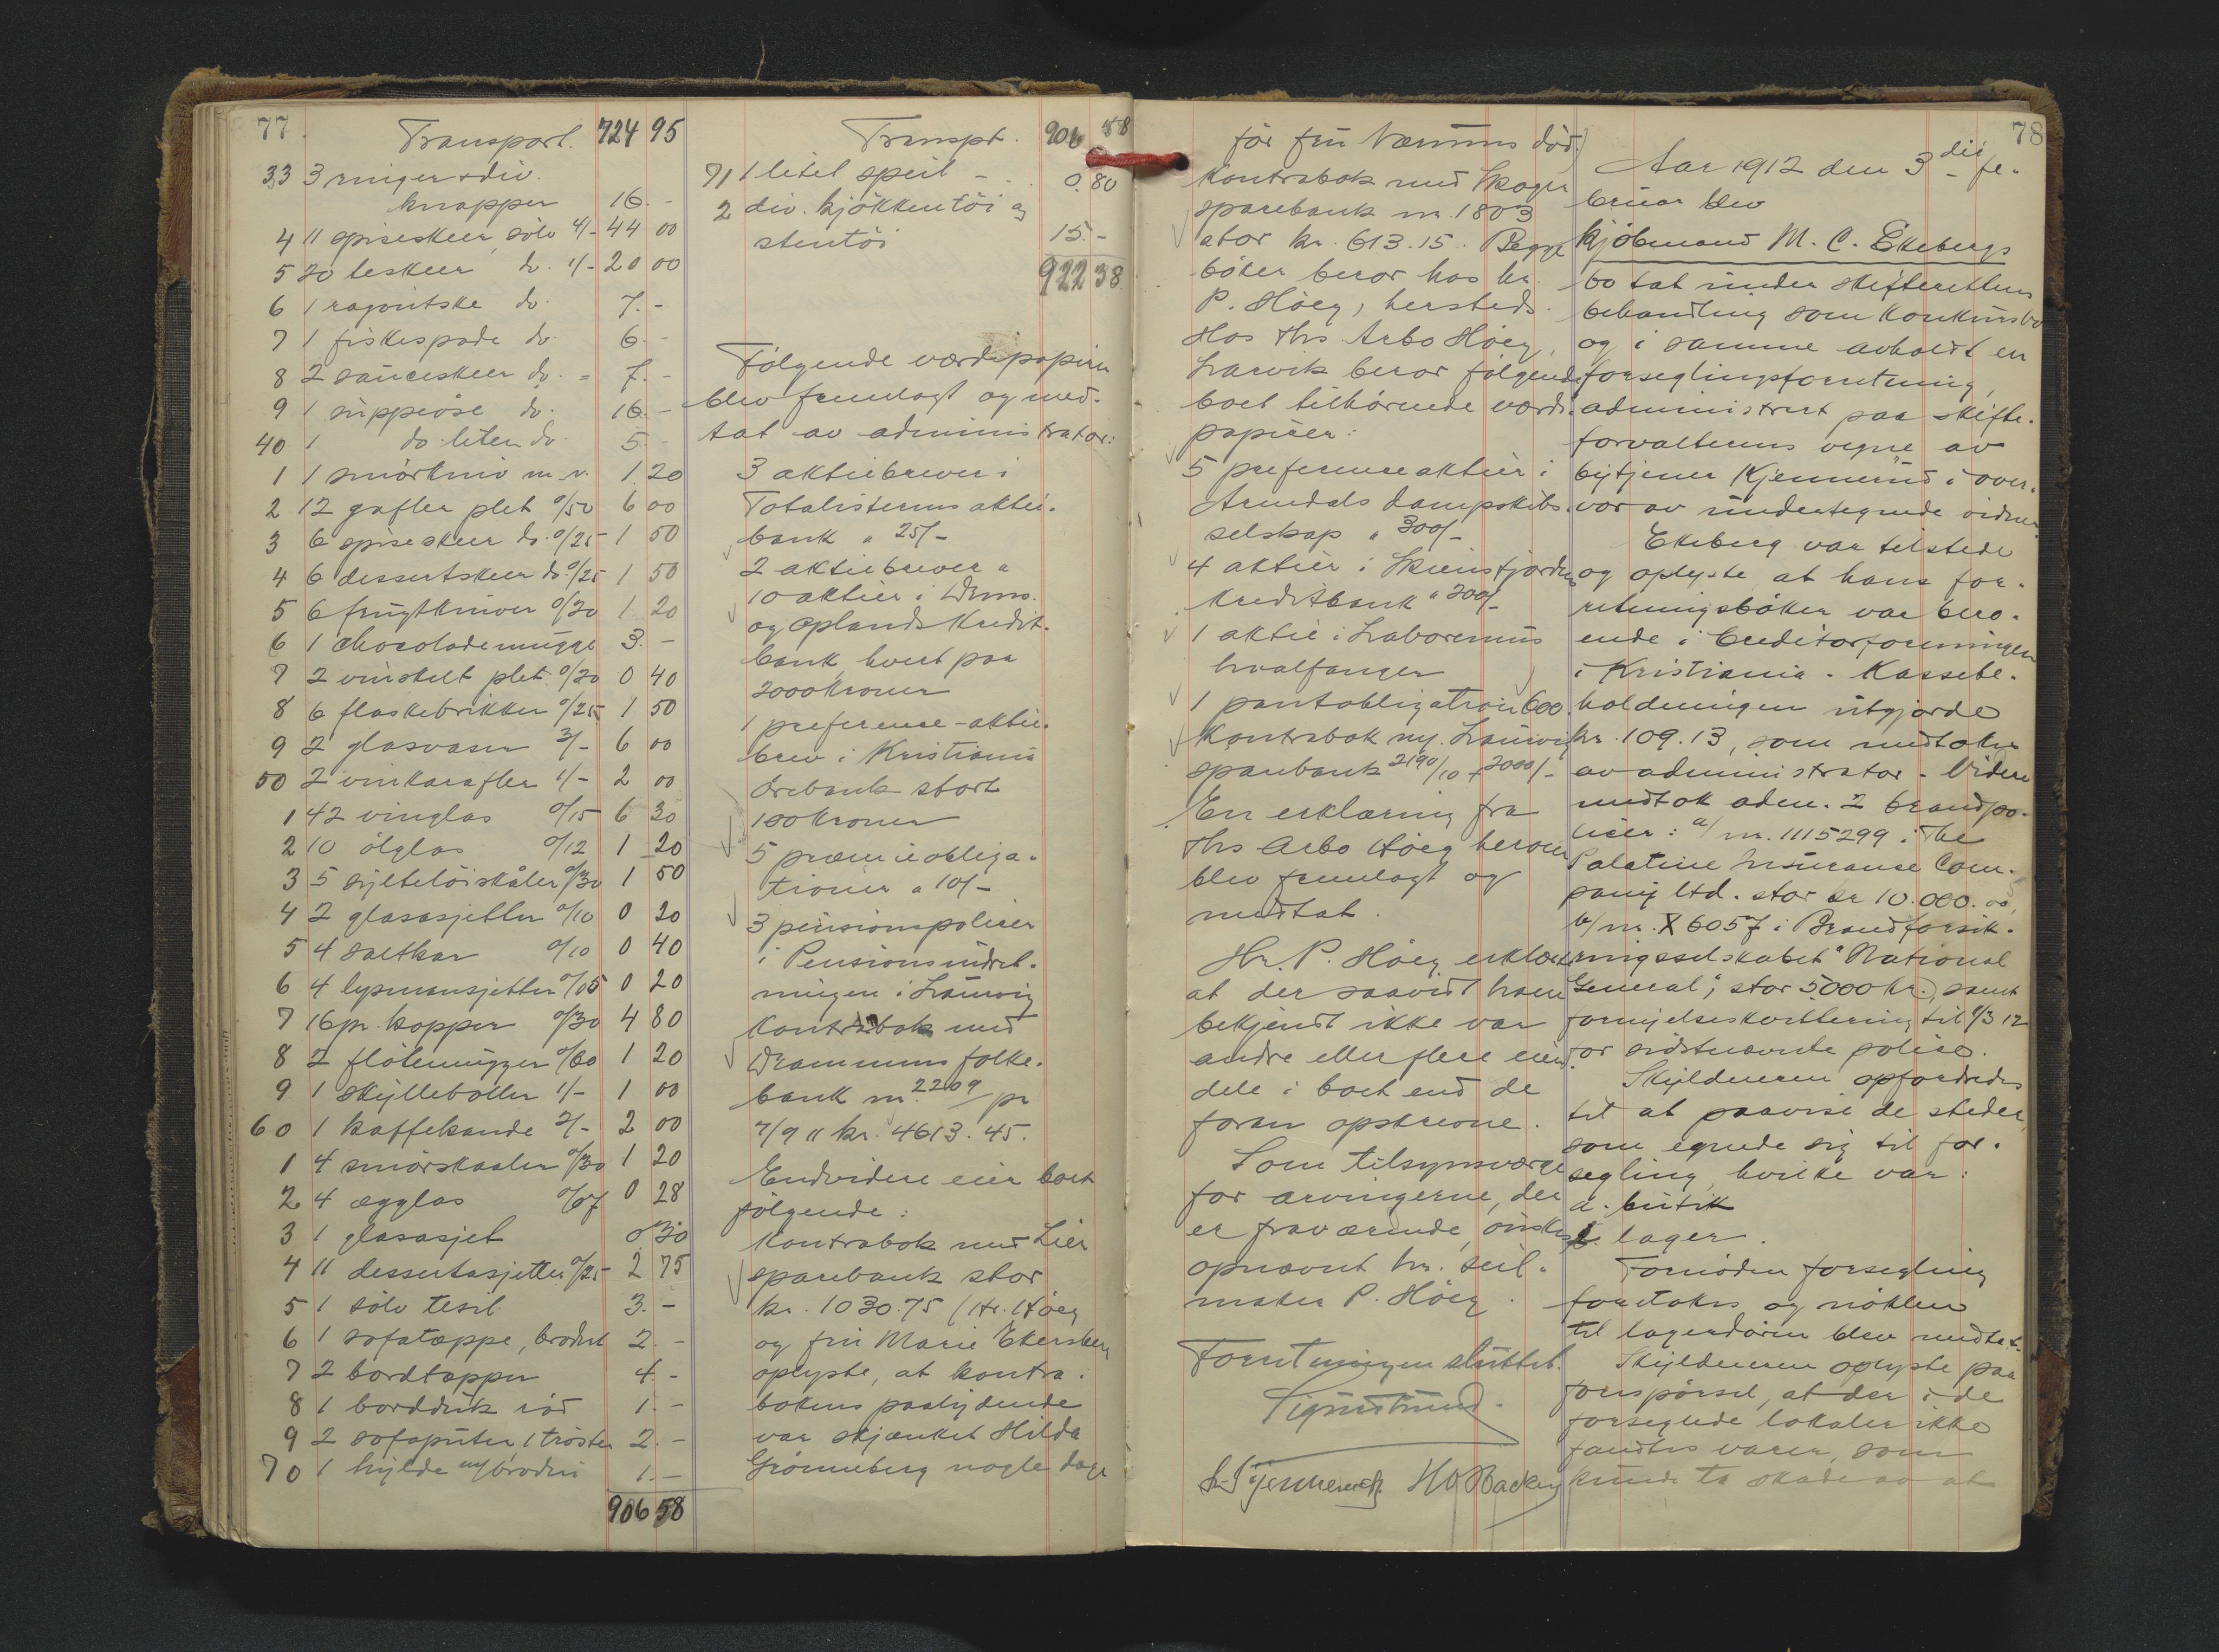 77
Transport. 724 95
33 3 ringer & div.
knapper 16.-
4 11 spiseskeer sölv 4/- 44 00
5 20 teskeer do. 1/- 20 00
6 1 ragoutske do. 7.-
7 1 fiskespade do. 6.-
8 2 sauceskeer do. - 7.-
9 1 suppeöse do. 16.-
40 1 do liten do. 5.-
1 1 smörkniv m.v. 1.20
2 12 gafler plet 0/50 6 00
3 6 spiseskeer do. 0/25 1 50
4 6 dessertskeer do. 0/25 1 50
5 6 frugtkniver 0/20 1 20
6 1 chocolademugge 3.-
7 2 vinskilt plet 0/20 0 40
8 6 flaskebrikker 0/25 1 50
9 2 glasvaser 3/- 6 00
50 2 vinkarafler 1/- 2 00
1 42 vinglas 0/15 6 30
2 10 ölglas 0/12 1 20
3 5 syltetöiskåler 0/30 1 50
4 2 glasasjetter 0/10 0 20
5 4 saltkar 0/10 0 40
6 4 lysmansjetter 0/05 0 20
7 16 pr. kopper 0/30 4 80
8 2 flötemugger 0/60 1 20
9 1 skylleboller 1/- 1 00
60 1 kaffekande 2/- 2 00
1 4 smörskaaler 0/30 1 20
2 4 ægglas 0/07 0 28
3 1 glasasjet 0 30
4 11 dessertasjetter 0/25 2 75
5 1 sölv tesil 3.-
6 1 sofatæppe, broderi 2.-
7 2 bordtæpper 4.-
8 1 bordduk röd 1.-
9 2 sofaputer, 1 tröster 2.-
70 1 hylde m/broderi 1.-
906 58
Transpt. 906 58
71 1 litet speil - 0.80
2 div. kjökkentöi og
stentöi 15.-
922 38
Fölgende værdipapirer
blev fremlagt og mot-
tat av administrator:
3 aktiebrever i
Totalisternes aktie-
bank a 25/-
2 aktiebrever a
10 aktier i Drms.
og Oplands Kredit-
bank, hvert paa
2000 kroner
1 preference-aktie-
brev i Kristiania
örebank stort
100 kroner
5 præmieobliga-
tioner a 10/-
3 pensionspolicer
i Pensionsindret-
ningen i Laurvig
Kontrabok med
Drammens folke-
bank nr. 2209 pr
7/9 11 kr. 4613.45.
Endvidere eier boet
fölgende:
Kontrabok med Lier
sparebank stor
kr. 1030.75 (Hr. Höeg
og fru Marie Ekersberg
oplyste, at kontra-
bokens paalydende
var skjænket Hilda
Grönneberg nogle dage
för fru Værums död.)
Kontrabok med Skoger
sparebank nr. 1803
stor kr. 613.15. Begge
böker beror hos hr.
P. Höeg, hersteds.
Hos Ths Arbo Höeg,
Larvik beror fölgende
boet tilhörende værdi-
papirer:
5 preferenceaktier i
Arendals dampskibs-
selskap a 300/-
4 aktier i Skiensfjordens
kreditbank a 200/-
1 aktie i Laboremus
hvalfanger
1 pantobligation 600
Kontrabok m/. Laurvig
sparebank 2190/10 + 2000/-
En erklæring fra
Ths Arbo Höeg herom
blev fremlagt og
mottat.
Hr. P. Höeg erklærte
at der saavidt ham
bekjendt ikke var
andre eller flere eien-
dele i boet end de
foran opskrevne.
Som tilsynsværge
for arvingerne, der
er fraværende, önskes
opnævnt hr. seil-
maker P. Höeg.
Forretningen sluttet.
78
Aar 1912 den 3die fe-
bruar blev
kjöbmand M. C. Ekebergs
bo tat under skifterettens
behandling som konkursbo
og i samme avholdt en
forseglingsforretning,
administrert paa skifte-
forvalterens vegne av
bytjener Kjennerud i over-
vær av undertegnede vidner.
Ekeberg var tilstede
og oplyste at hans for-
retningsböker var bero-
ende i Creditorforeningen
i Kristiania. Kassebe-
holdningen utgjorde
kr. 109.13, som mottokes
av administrator. Videre
mottok adm. 2 brandpo-
licer: a/ nr. 1115299 i The
Palatine Insurance Com-
pany ltd. stor kr 10.000.00,
b/ nr. X6057 i Brandforsik-
ringsselskabet "National
General", stor 5000 kr., samt
fornyelseskvittering til 1/3 12
for sidstnævnte police.
Skyldneren opfordredes
til at paavise de steder,
som egnede sig til for-
segling, hvilke var:
a. butik
b. lager.
Fornöden forsegling
foretokes og nöklen
til lagerdören blev mottat.
Skyldneren oplyste paa
forespörsel, at der i de
forseglede lokaler ikke
fandtes varer, som
kunde ta skade av at